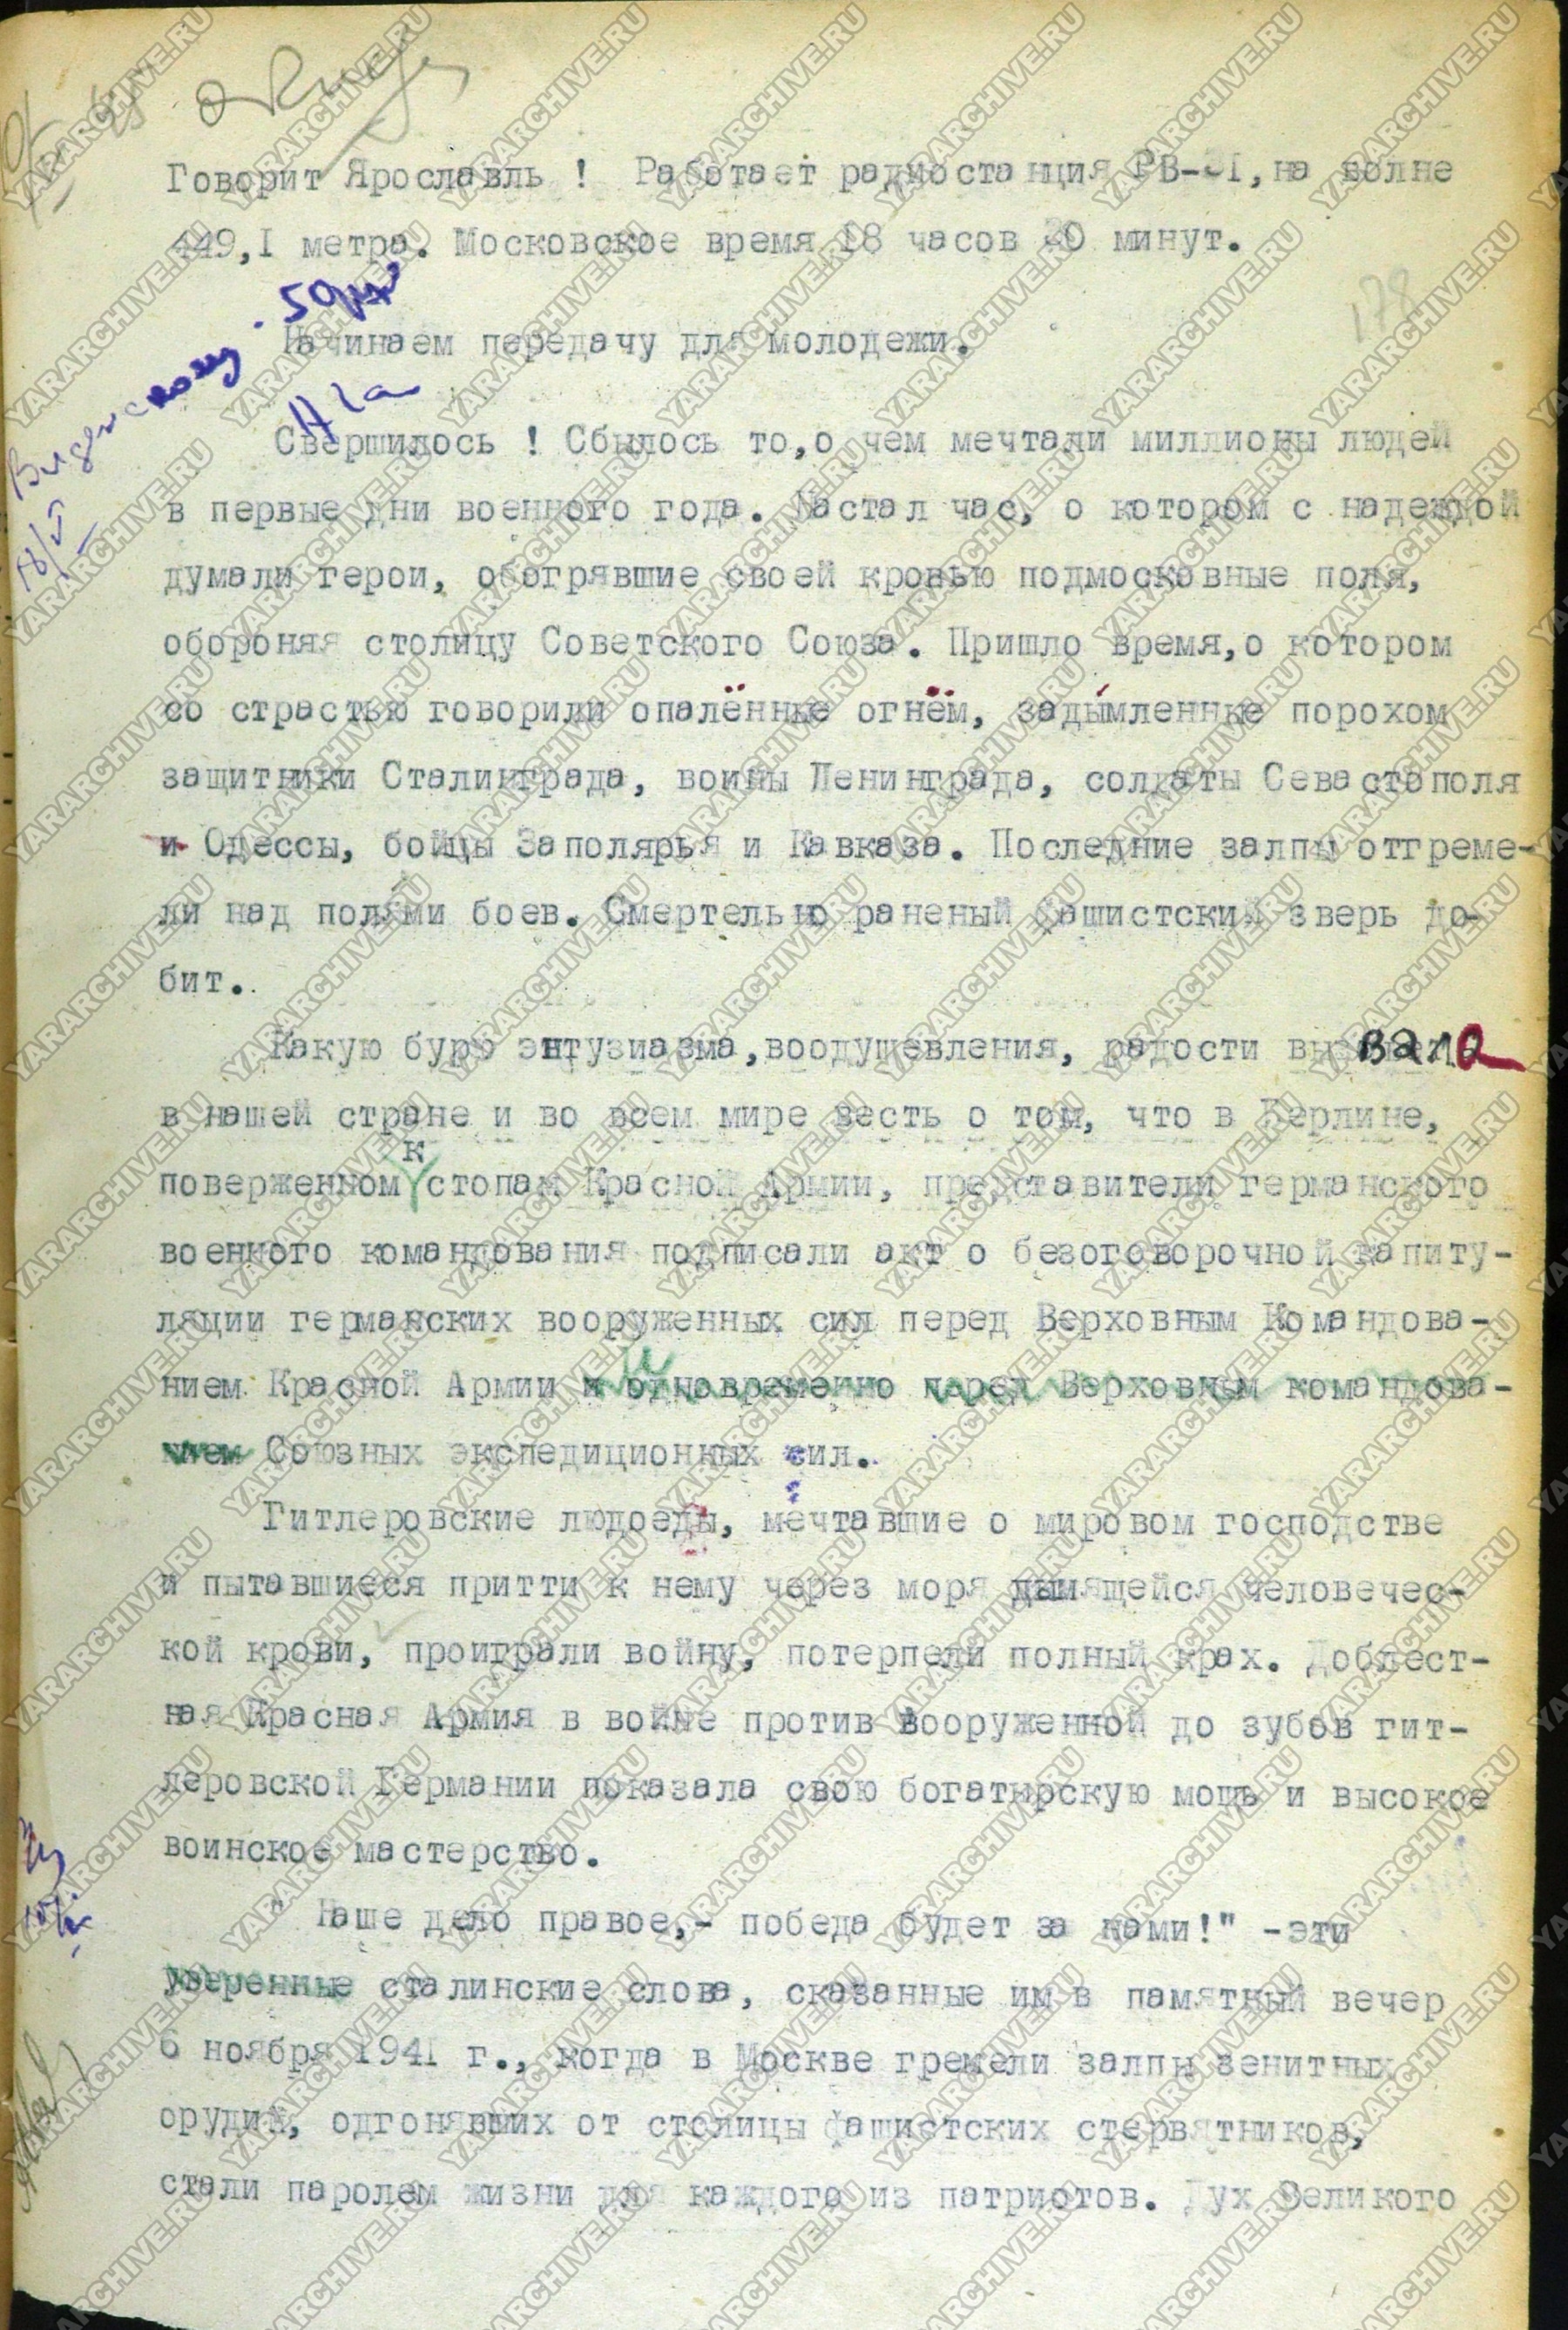 178
Говорит Ярославль ! Работает радиостанция РВ-31,на волне
449,I метра. Московское время 18 часов 20 минут.
Начинаем передачу для молодежи.
Свершилось ! Сбылось то,о чем мечтали миллионы людей
в первые дни военного года. Настал час, о котором с надеждой
думали герои, обогрявшие своей кровью подмосковные поля,
обороняя столицу Советского Союза. Пришло время,о котором
со страстью говорили опалённые огнём, задымленные порохом
защитники Сталинграда, воины Ленинграда, солдаты Севастополя
и Одессы, бойцы Заполярья и Кавказа. Последние залпы отгреме-
ли над полями боев. Смертельно раненый фашистский зверь до-
бит.
Какую бурю энтузиазма,воодушевления, радости вызвала
в нашей стране и во всем мире весть о том, что в Берлине,
поверженном к стопам Красной Армии, представители германского
военного командования подписали акт о безоговорочной капиту-
ляции германских вооруженных сил перед Верховным Командова-
нием Красной Армии и одновременно перед Верховным командова-
нием Союзных экспедиционных сил.
Гитлеровские людоеды, мечтавшие о мировом господстве
и пытавшиеся притти к нему через моря дымящейся человечес-
кой крови, проиграли войну, потерпели полный крах. Доблест-
ная Красная Армия в войне против вооруженной до зубов гит-
леровской Германии показала свою богатырскую мощь и высокое
воинское мастерство.
" Наше дело правое,- победа будет за нами!" -эти
уверенные сталинские слова, сказанные им в памятный вечер
6 ноября 1941 г., когда в Москве гремели залпы зенитных
орудий, одгонявших от столицы фашистских стервятников,
стали паролем жизни для каждого из патриотов. Дух Великого
YARARCHIVE.RU